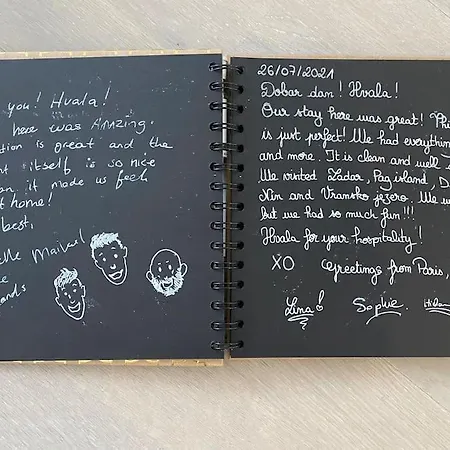 you! Hvala!
here was Amazing.
tion is great and the
t itself is so nice
on it made us feel
t home!
best,
26/07/2021
Dobar dan! Hvala!
Our stay here was great!
is just perfect! We had everything
and more. It is clean and well
We visited Zadar, Pag island,
Nin and Vransko jezero. We
but we had so much fun!!!
Hvala for your hospitality!
XO Greetings from Paris,
Lina Sophie